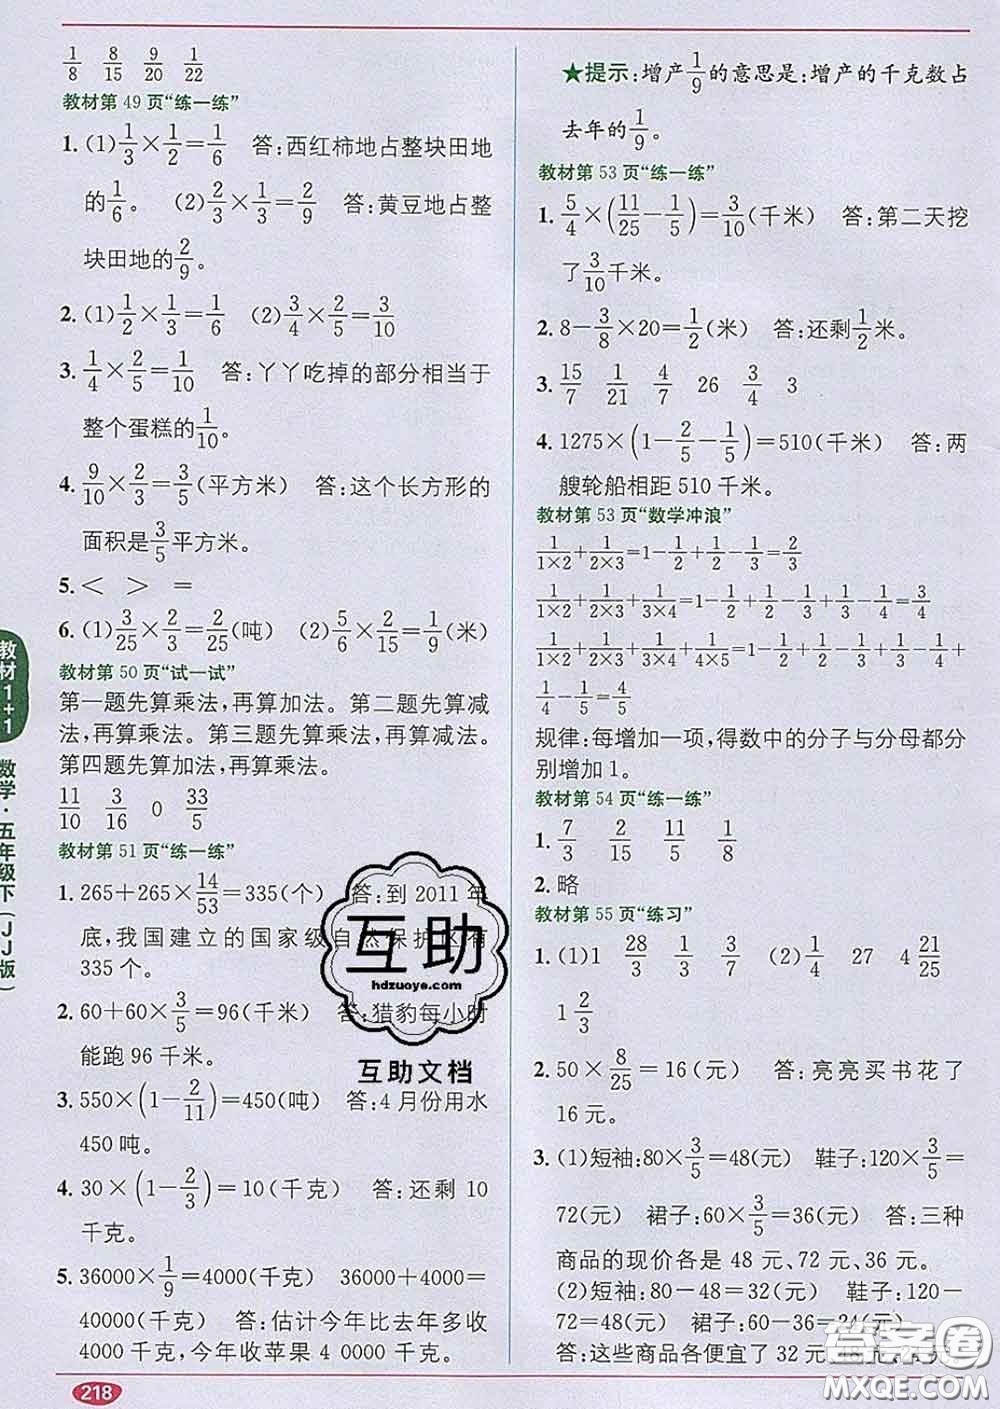 1/8 8/15 9/20 1/22
教材第 49 页“练一练”
1. (1) 1/3×1/2=1/6 答:西红柿地占整块田地
的1/6。 (2) 2/3×1/3=2/9 答:黄豆地占整
块田地的2/9。
2. (1) 1/2×1/3=1/6 (2) 3/4×2/5=3/10
3. 1/4×2/5=1/10 答:丫丫吃掉的部分相当于
整个蛋糕的1/10。
4. 9/10×2/3=3/5(平方米) 答:这个长方形的
面积是3/5平方米。
5. < > =
6. (1) 3/25×2/3=2/25(吨) (2) 5/6×2/15=1/9(米)
教材第 50 页“试一试”
第一题先算乘法,再算加法。第二题先算减
法,再算乘法。第三题先算乘法,再算减法。
第四题先算加法,再算乘法。
11/10 3/16 0 33/5
教材第 51 页“练一练”
1. 265+265×14/53=335(个) 答:到 2011 年
底,我国建立的国家级自然保护区有
335 个。
2. 60+60×3/5=96(千米) 答:猎豹每小时
能跑 96 千米。
3. 550×(1-2/11)=450(吨) 答:4 月份用水
450 吨。
4. 30×(1-2/3)=10(千克) 答:还剩 10
千克。
5. 36000×1/9=4000(千克) 36000+4000=
40000(千克) 答:估计今年比去年多收
4000 千克,今年收苹果 4 0000 千克。
★提示:增产1/9的意思是:增产的千克数占
去年的1/9。
教材第 53 页“练一练”
1. 5/4×(11/25-1/5)=3/10(千米) 答:第二天挖
了3/10千米。
2. 8-3/8×20=1/2(米) 答:还剩1/2米。
3. 15/7 1/21 4/7 26 3/4 3
4. 1275×(1-2/5-1/5)=510(千米) 答:两
艘轮船相距 510 千米。
教材第 53 页“数学冲浪”
1/1×2+1/2×3=1-1/2+1/2-1/3=2/3
1/1×2+1/2×3+1/3×4=1-1/2+1/2-1/3+1/3-1/4=3/4
1/1×2+1/2×3+1/3×4+1/4×5=1-1/2+1/2-1/3+1/3-1/4+
1/4-1/5=4/5
规律:每增加一项,得数中的分子与分母都分
别增加 1。
教材第 54 页“练一练”
1. 7/3 2/15 11/5 1/8
2. 略
教材第 55 页“练习”
1. (1)1 28/3 1/3 3/7 (2)1/4 27 4 21/25
1 2/3
2. 50×8/25=16(元) 答:亮亮买书花了
16 元。
3. (1)短袖:80×3/5=48(元) 鞋子:120×3/5=
72(元) 裙子:60×3/5=36(元) 答:三种
商品的现价各是 48 元、72 元、36 元。
(2)短袖:80-48=32(元) 鞋子:120-
72=48(元) 裙子:60-36=24(元)
答:这些商品各便宜了 32 元、48 元、
教材1+1 数学·五年级下(JJ版)
218
互助
hdzuoye.com
互助文档
答案圈
MXQE.COM